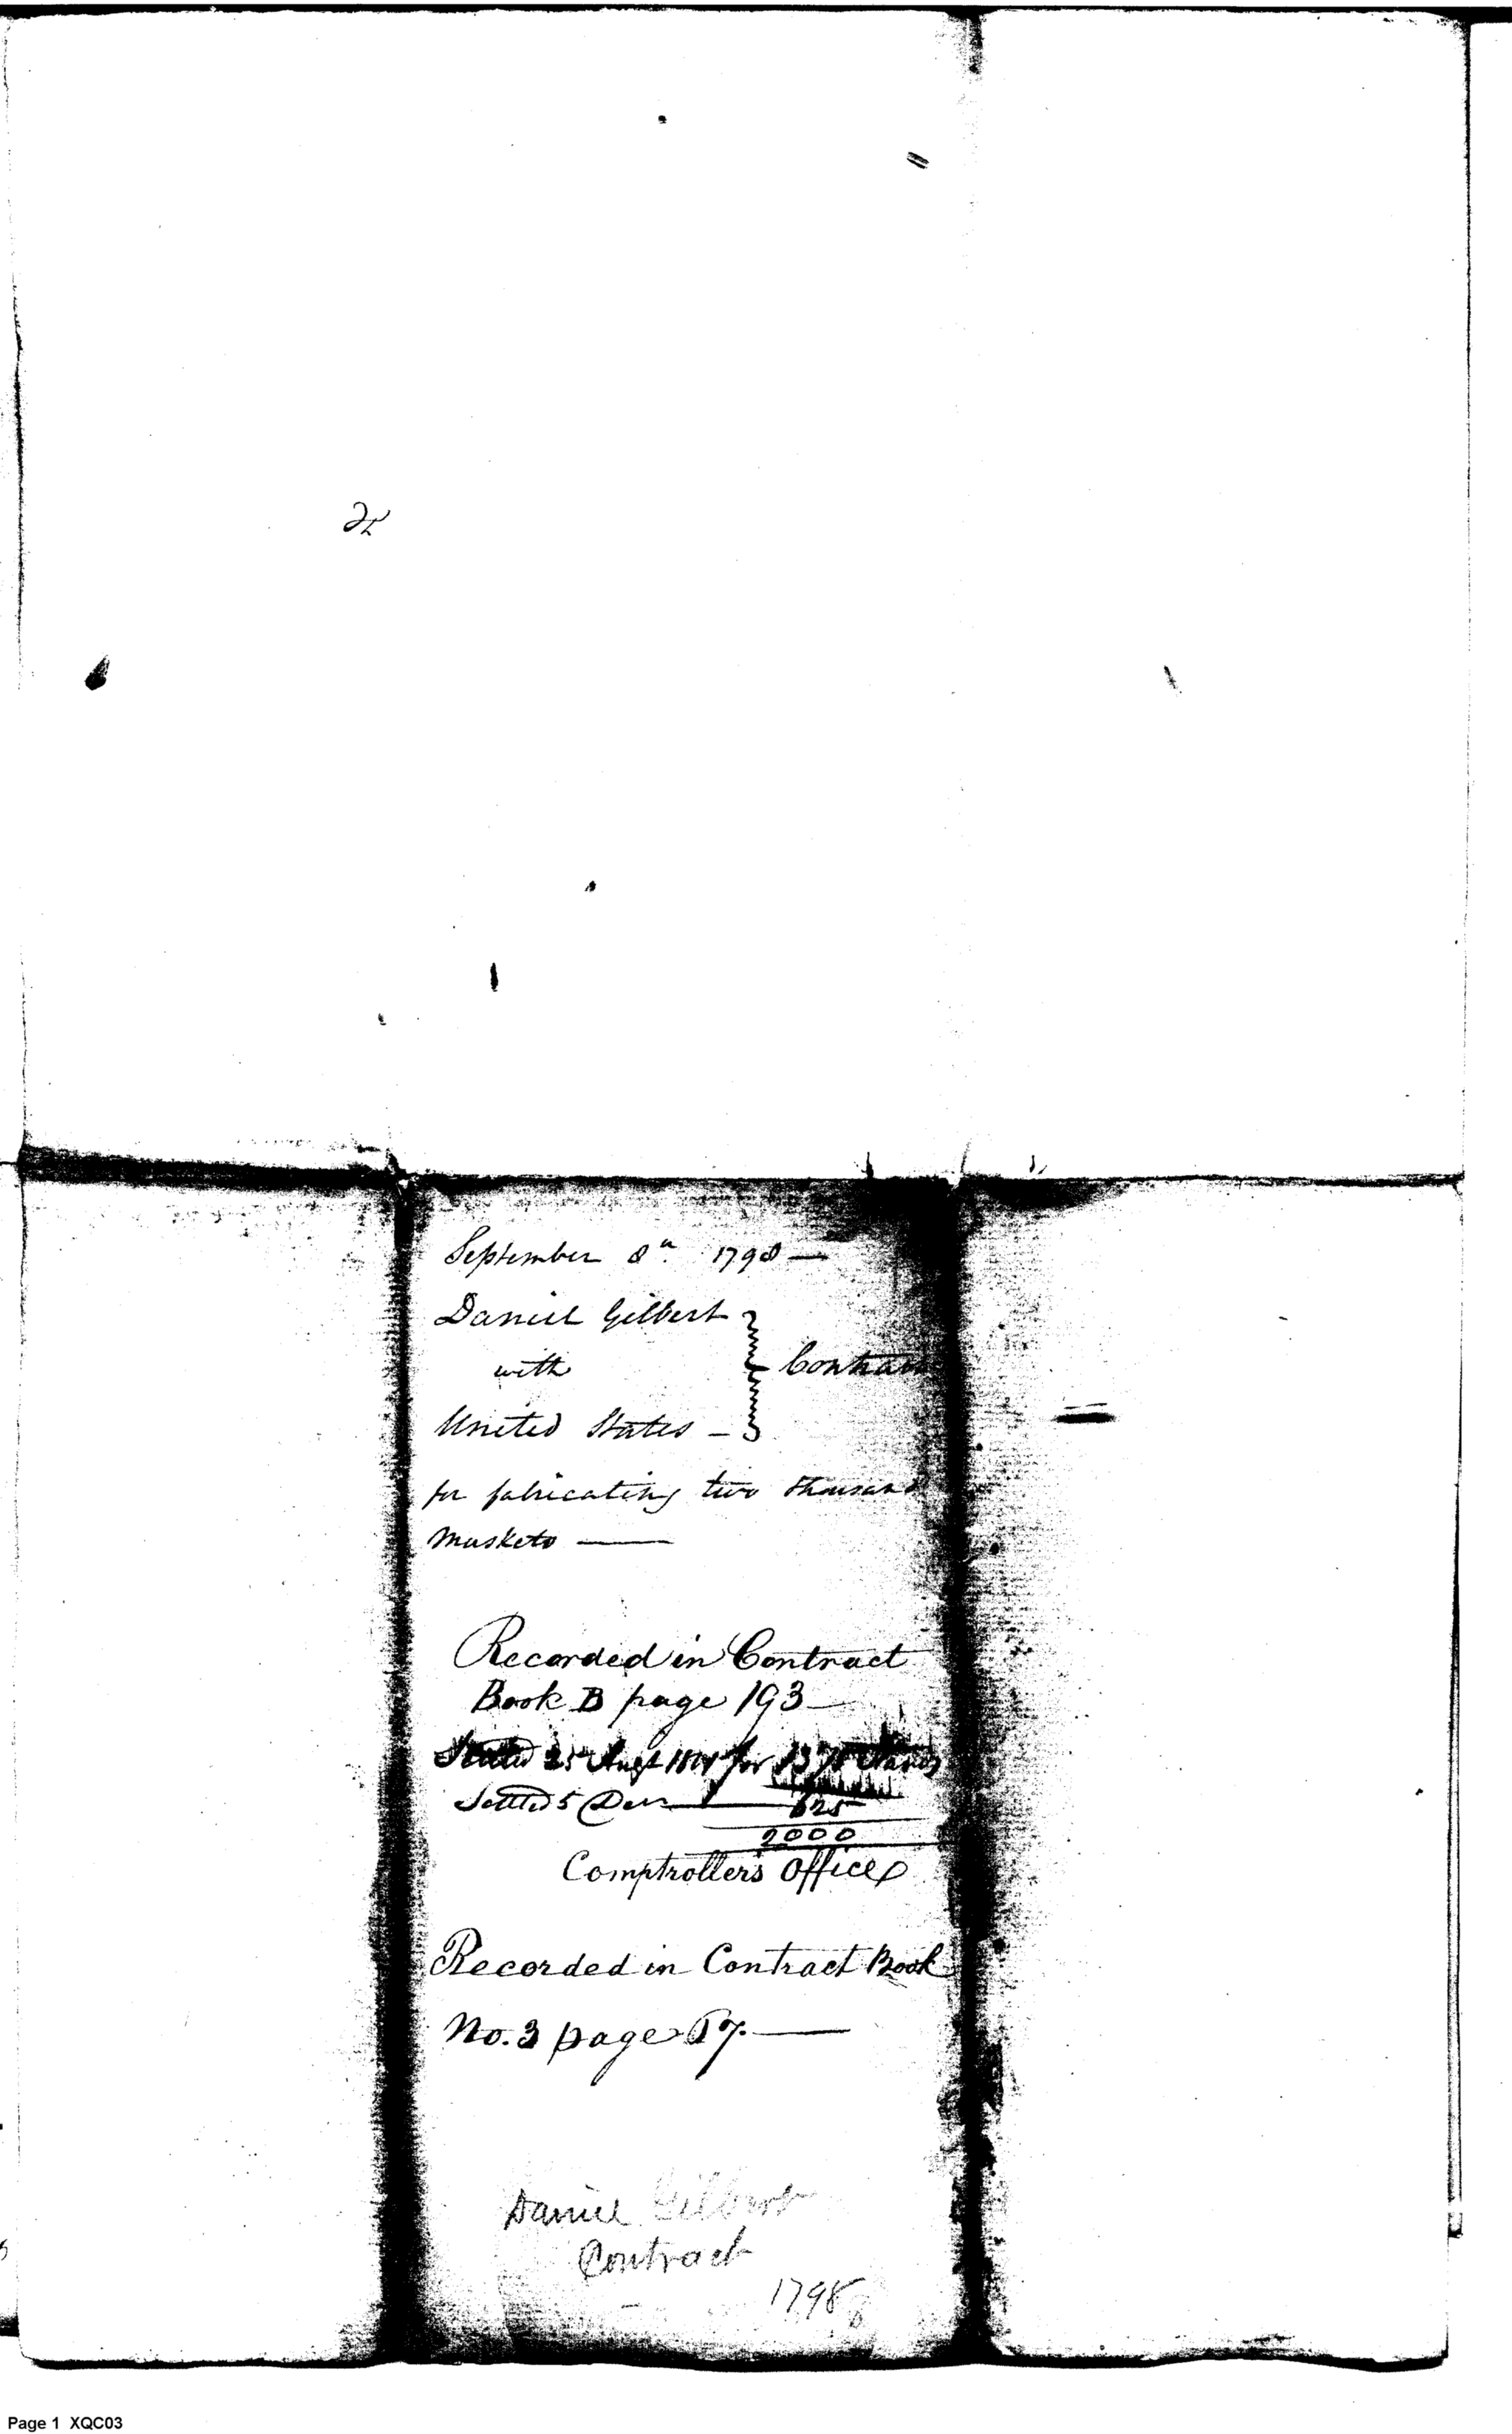 September 8th. 1798 —
Daniel Gilbert
with
Contract
United States —
for fabricating two thousand
muskets —
Recorded in Contract
Book B page 193 —
Settled 25 Augt for 1375
Settled 5 Decr — 625
2000
Comptroller's Office
Recorded in Contract Book
No. 3 page —
Daniel Gilbert
Contract
1798
Page 1 XQC03